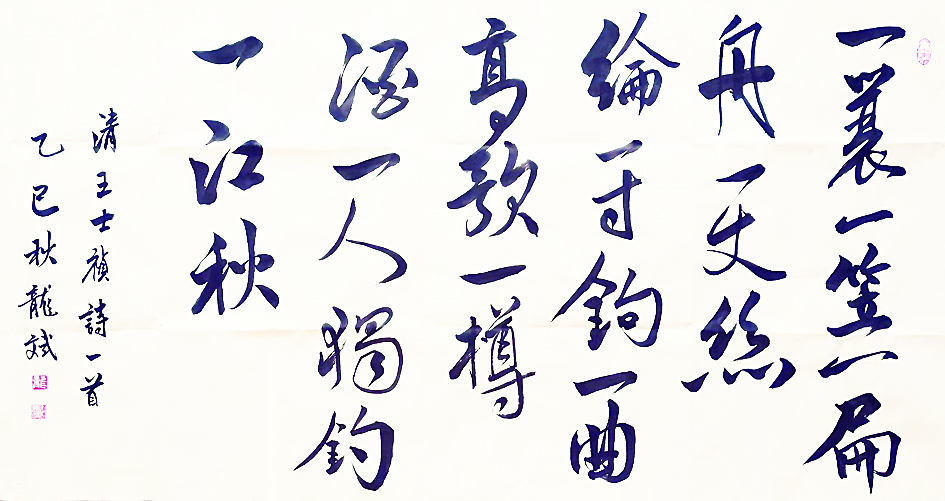 一蓑一笠一扁
舟一丈絲
綸一寸鉤一曲
高歌一樽
酒一人獨釣
一江秋
清王士禎詩一首
乙巳秋龍斌